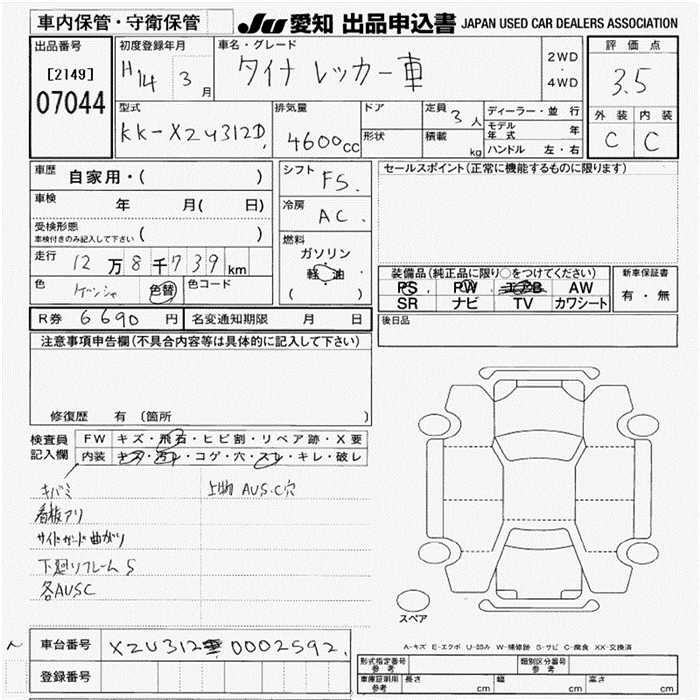 車内保管・守衛保管
JU 愛知 出品申込書 JAPAN USED CAR DEALERS ASSOCIATION
出品番号
[2149]
07044
初度登録年月
H14 3月
車名・グレード
ダイナ レッカー車
2WD
・
4WD
評価点
3.5
外装 内装
C C
型式
KK-XZU312D
排気量
4600cc
ドア
形状
定員 3人
積載 kg
ディーラー・並行
モデル年式 年
ハンドル 左・右
車歴
自家用・( )
車検 年 月( 日)
受検形態
車検付きのみ記入して下さい ( )
走行 12万8千739km
色 ゲンシャ 色替 色コード
シフト F5.
冷房 AC.
燃料
ガソリン
軽油
( )
セールスポイント(正常に機能するものに限ります)
装備品(純正品に限り○をつけてください)
PS PW エアB AW
SR ナビ TV カワシート
新車保証書
有・無
後日品
R券 6690円 名変通知期限 月 日
注意事項申告欄(不具合内容等は具体的に記入して下さい)
修復歴 有(箇所
検査員記入欄
FW キズ・飛石・ヒビ割・リペア跡・X要
内装 キズ・汚レ・コゲ・穴・スレ・キレ・破レ
キバミ
看板アリ
サイドガード曲がり
下廻リフレームS
各AUSC
上物 AUS・C穴
スペア
A-キズ E-エクボ U-凹み W-補修跡 S-サビ C-腐食 XX-交換済
車台番号 XZU312 0002592
登録番号
型式指定番号 参考
類別区分番号 参考
車庫証明用 参考 長さ cm 幅 cm 高さ cm